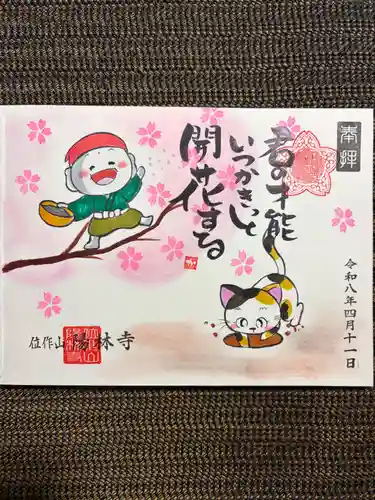 奉拝
君の才能
いつかきっと
開花する
令和八年四月十一日
位作山陽林寺